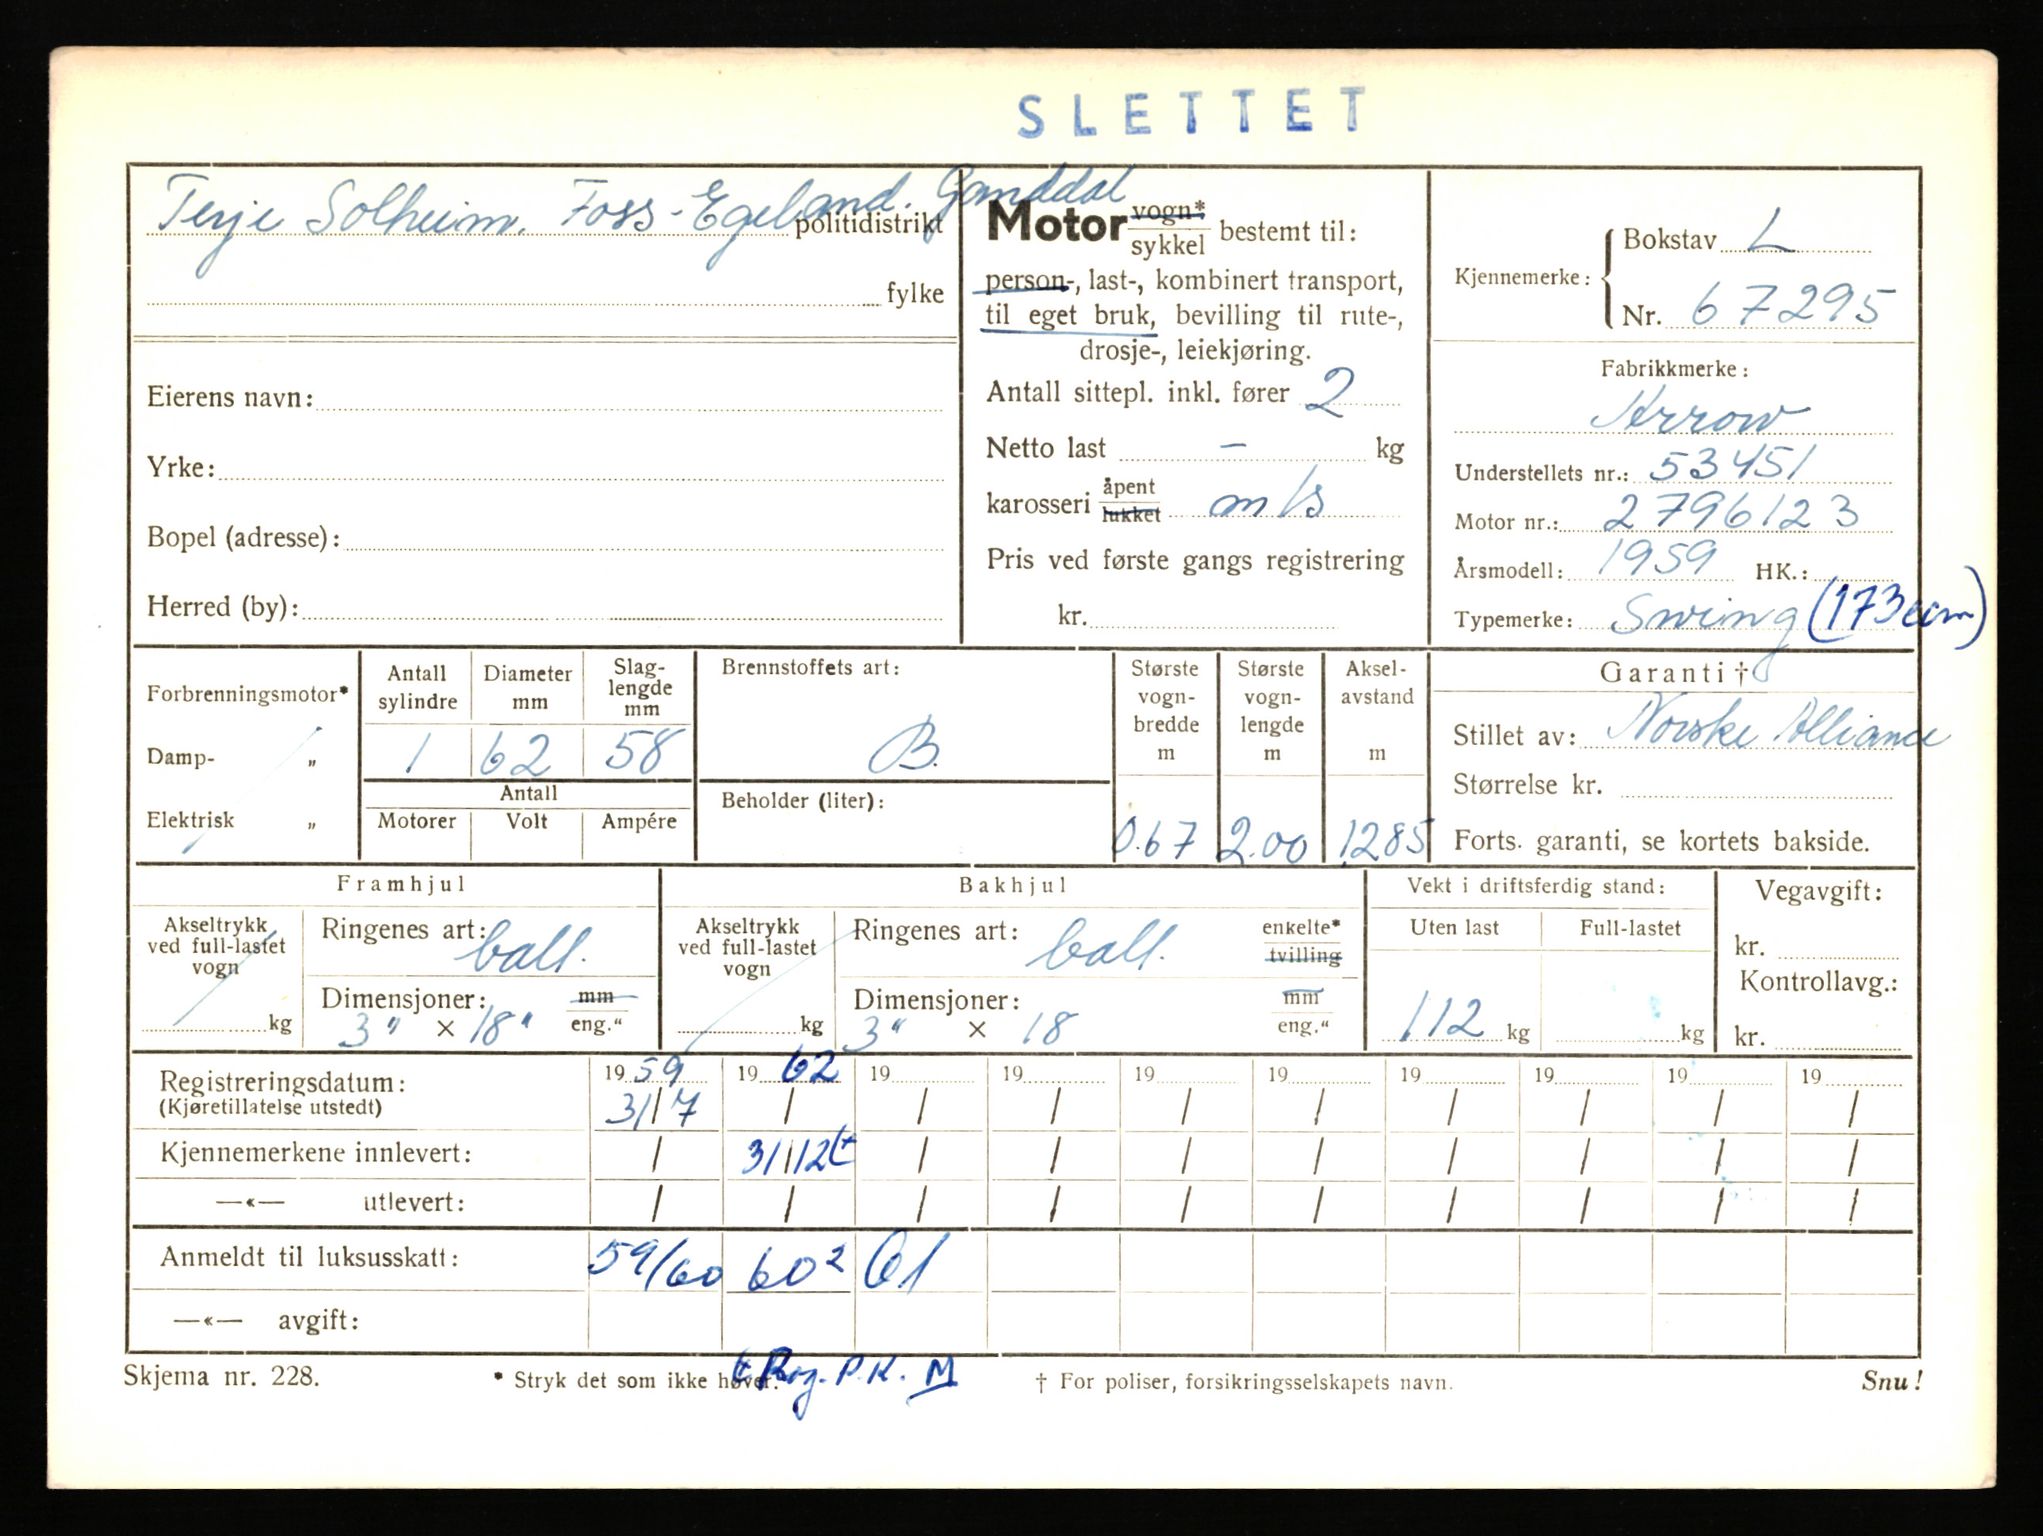 SLETTET
Terje Solheim, Foss-Egeland. Ganddal
politidistrikt
fylke
Eierens navn:
Yrke:
Bopel (adresse):
Herred (by):
Motor vogn* / sykkel bestemt til:
person-, last-, kombinert transport,
til eget bruk, bevilling til rute-,
drosje-, leiekjøring.
Antall sittepl. inkl. fører 2
Netto last – kg
karosseri åpent / lukket m/s
Pris ved første gangs registrering
kr.
Kjennemerke: Bokstav L
Nr. 67295
Fabrikkmerke:
Arrow
Understellets nr.: 53451
Motor nr.: 2796123
Årsmodell: 1959 HK.:
Typemerke: Swing (173ccm)
Forbrenningsmotor*
Damp- „
Elektrisk „
Antall sylindre Diameter mm Slag-lengde mm
1 62 58
Antall
Motorer Volt Ampére
Brennstoffets art:
B.
Beholder (liter):
Største vogn-bredde m
0.67
Største vogn-lengde m
2.00
Aksel-avstand m
1285
Garanti †
Stillet av: Norske Alliance
Størrelse kr.
Forts. garanti, se kortets bakside.
Framhjul
Akseltrykk ved full-lastet vogn
kg
Ringenes art: ball.
Dimensjoner: mm / eng.“
3" × 18"
Bakhjul
Akseltrykk ved full-lastet vogn
kg
Ringenes art: ball. enkelte* / tvilling
Dimensjoner: mm / eng.“
3" × 18
Vekt i driftsferdig stand:
Uten last Full-lastet
112 kg kg
Vegavgift:
kr.
Kontrollavg.:
kr.
Registreringsdatum: 19 59 19 62 19 19 19 19 19 19 19 19
(Kjøretillatelse utstedt) 31/7 / / / / / / / / /
Kjennemerkene innlevert: / 31/12 t / / / / / / / /
—«— utlevert: / / / / / / / / / /
Anmeldt til luksusskatt: 59/60 60² 61
—«— avgift:
Skjema nr. 228.
* Stryk det som ikke høver.
t Rog. P.K. M
† For poliser, forsikringsselskapets navn.
Snu!